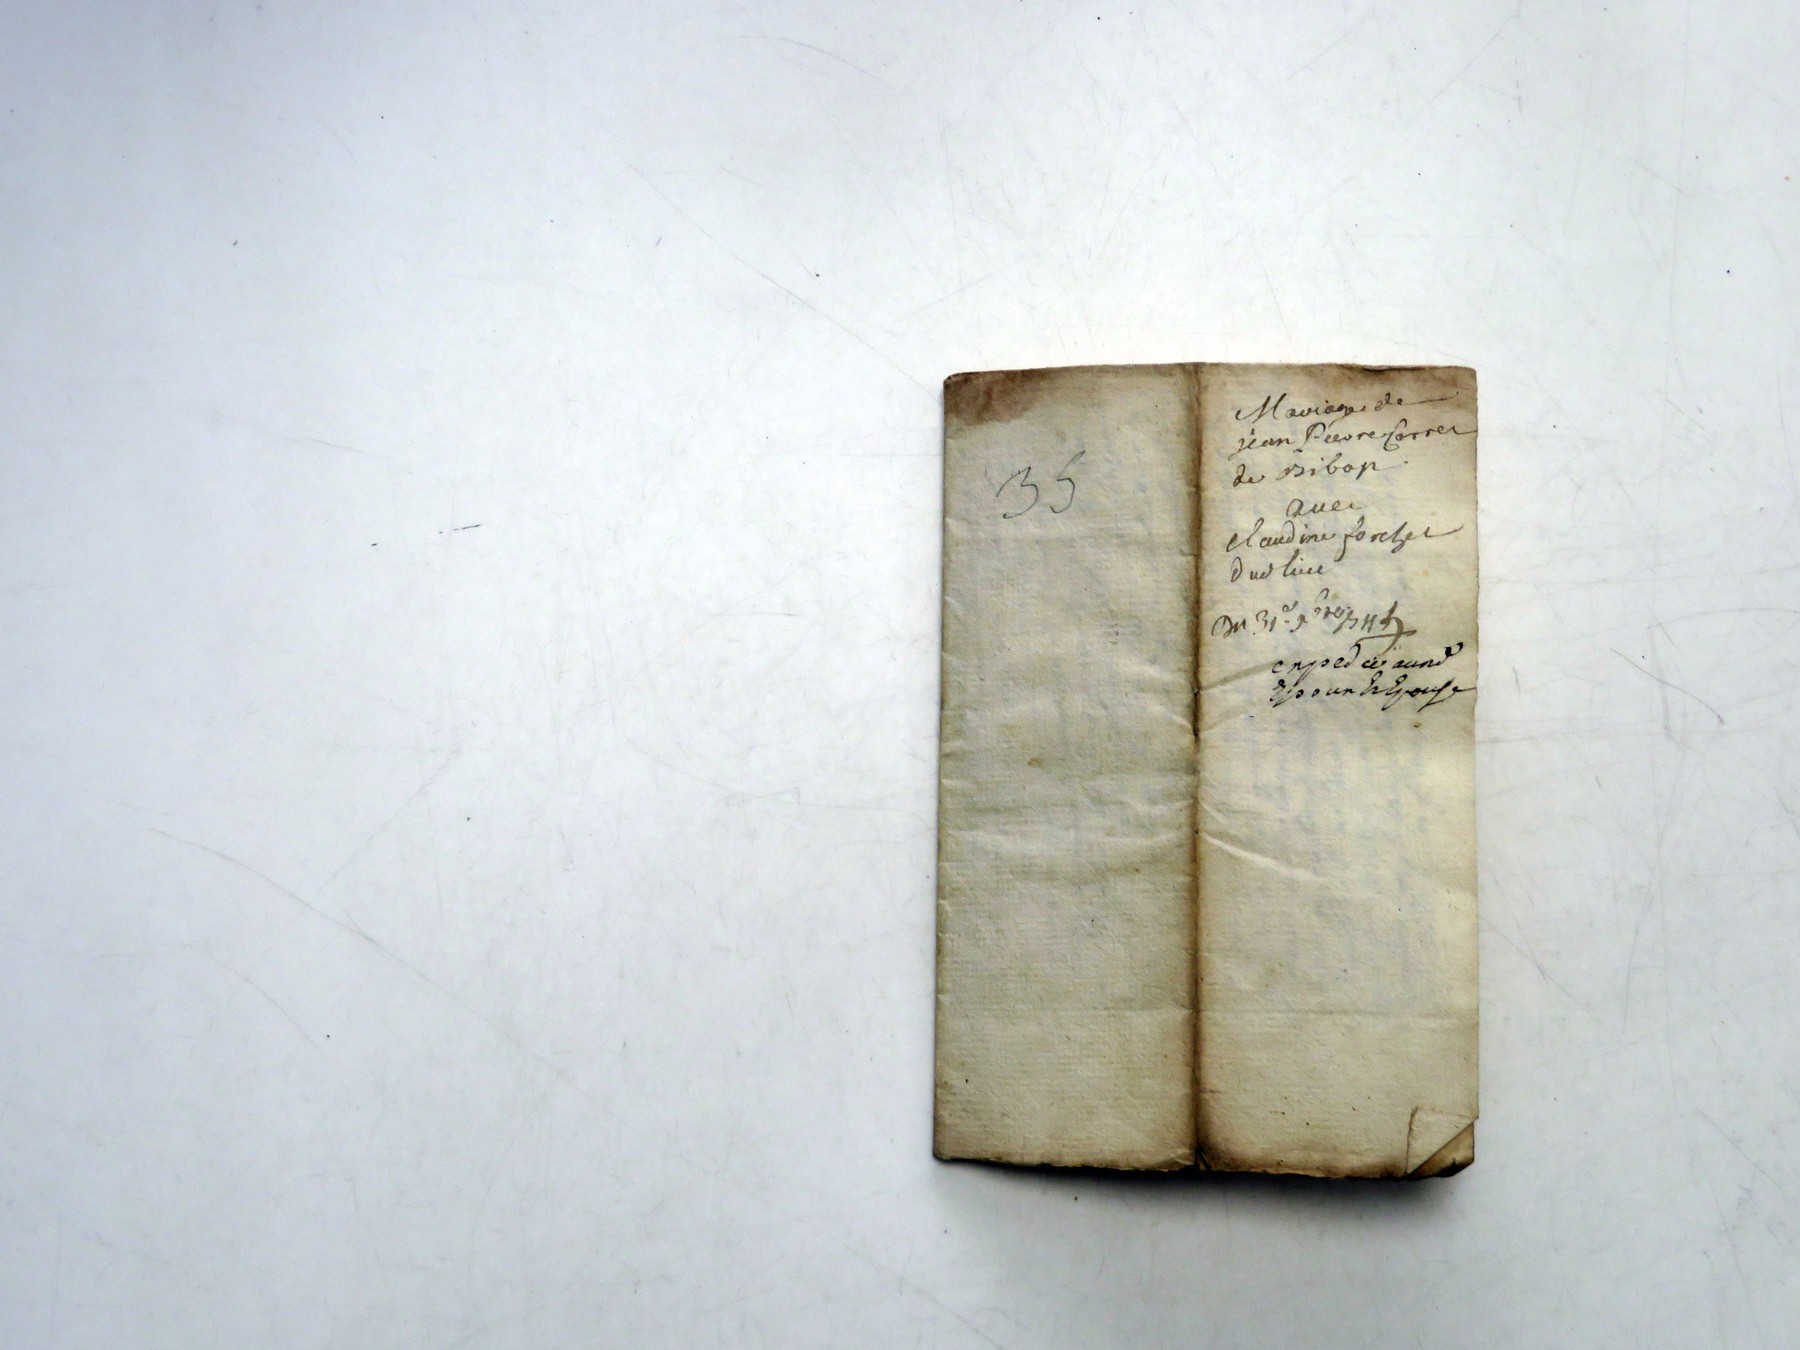 35
Mariage de
jean Pierre Corret
de Ribop
avec
claudine forchet
dud lieu
Du 31e
expedié aund
Epoux et Epouse